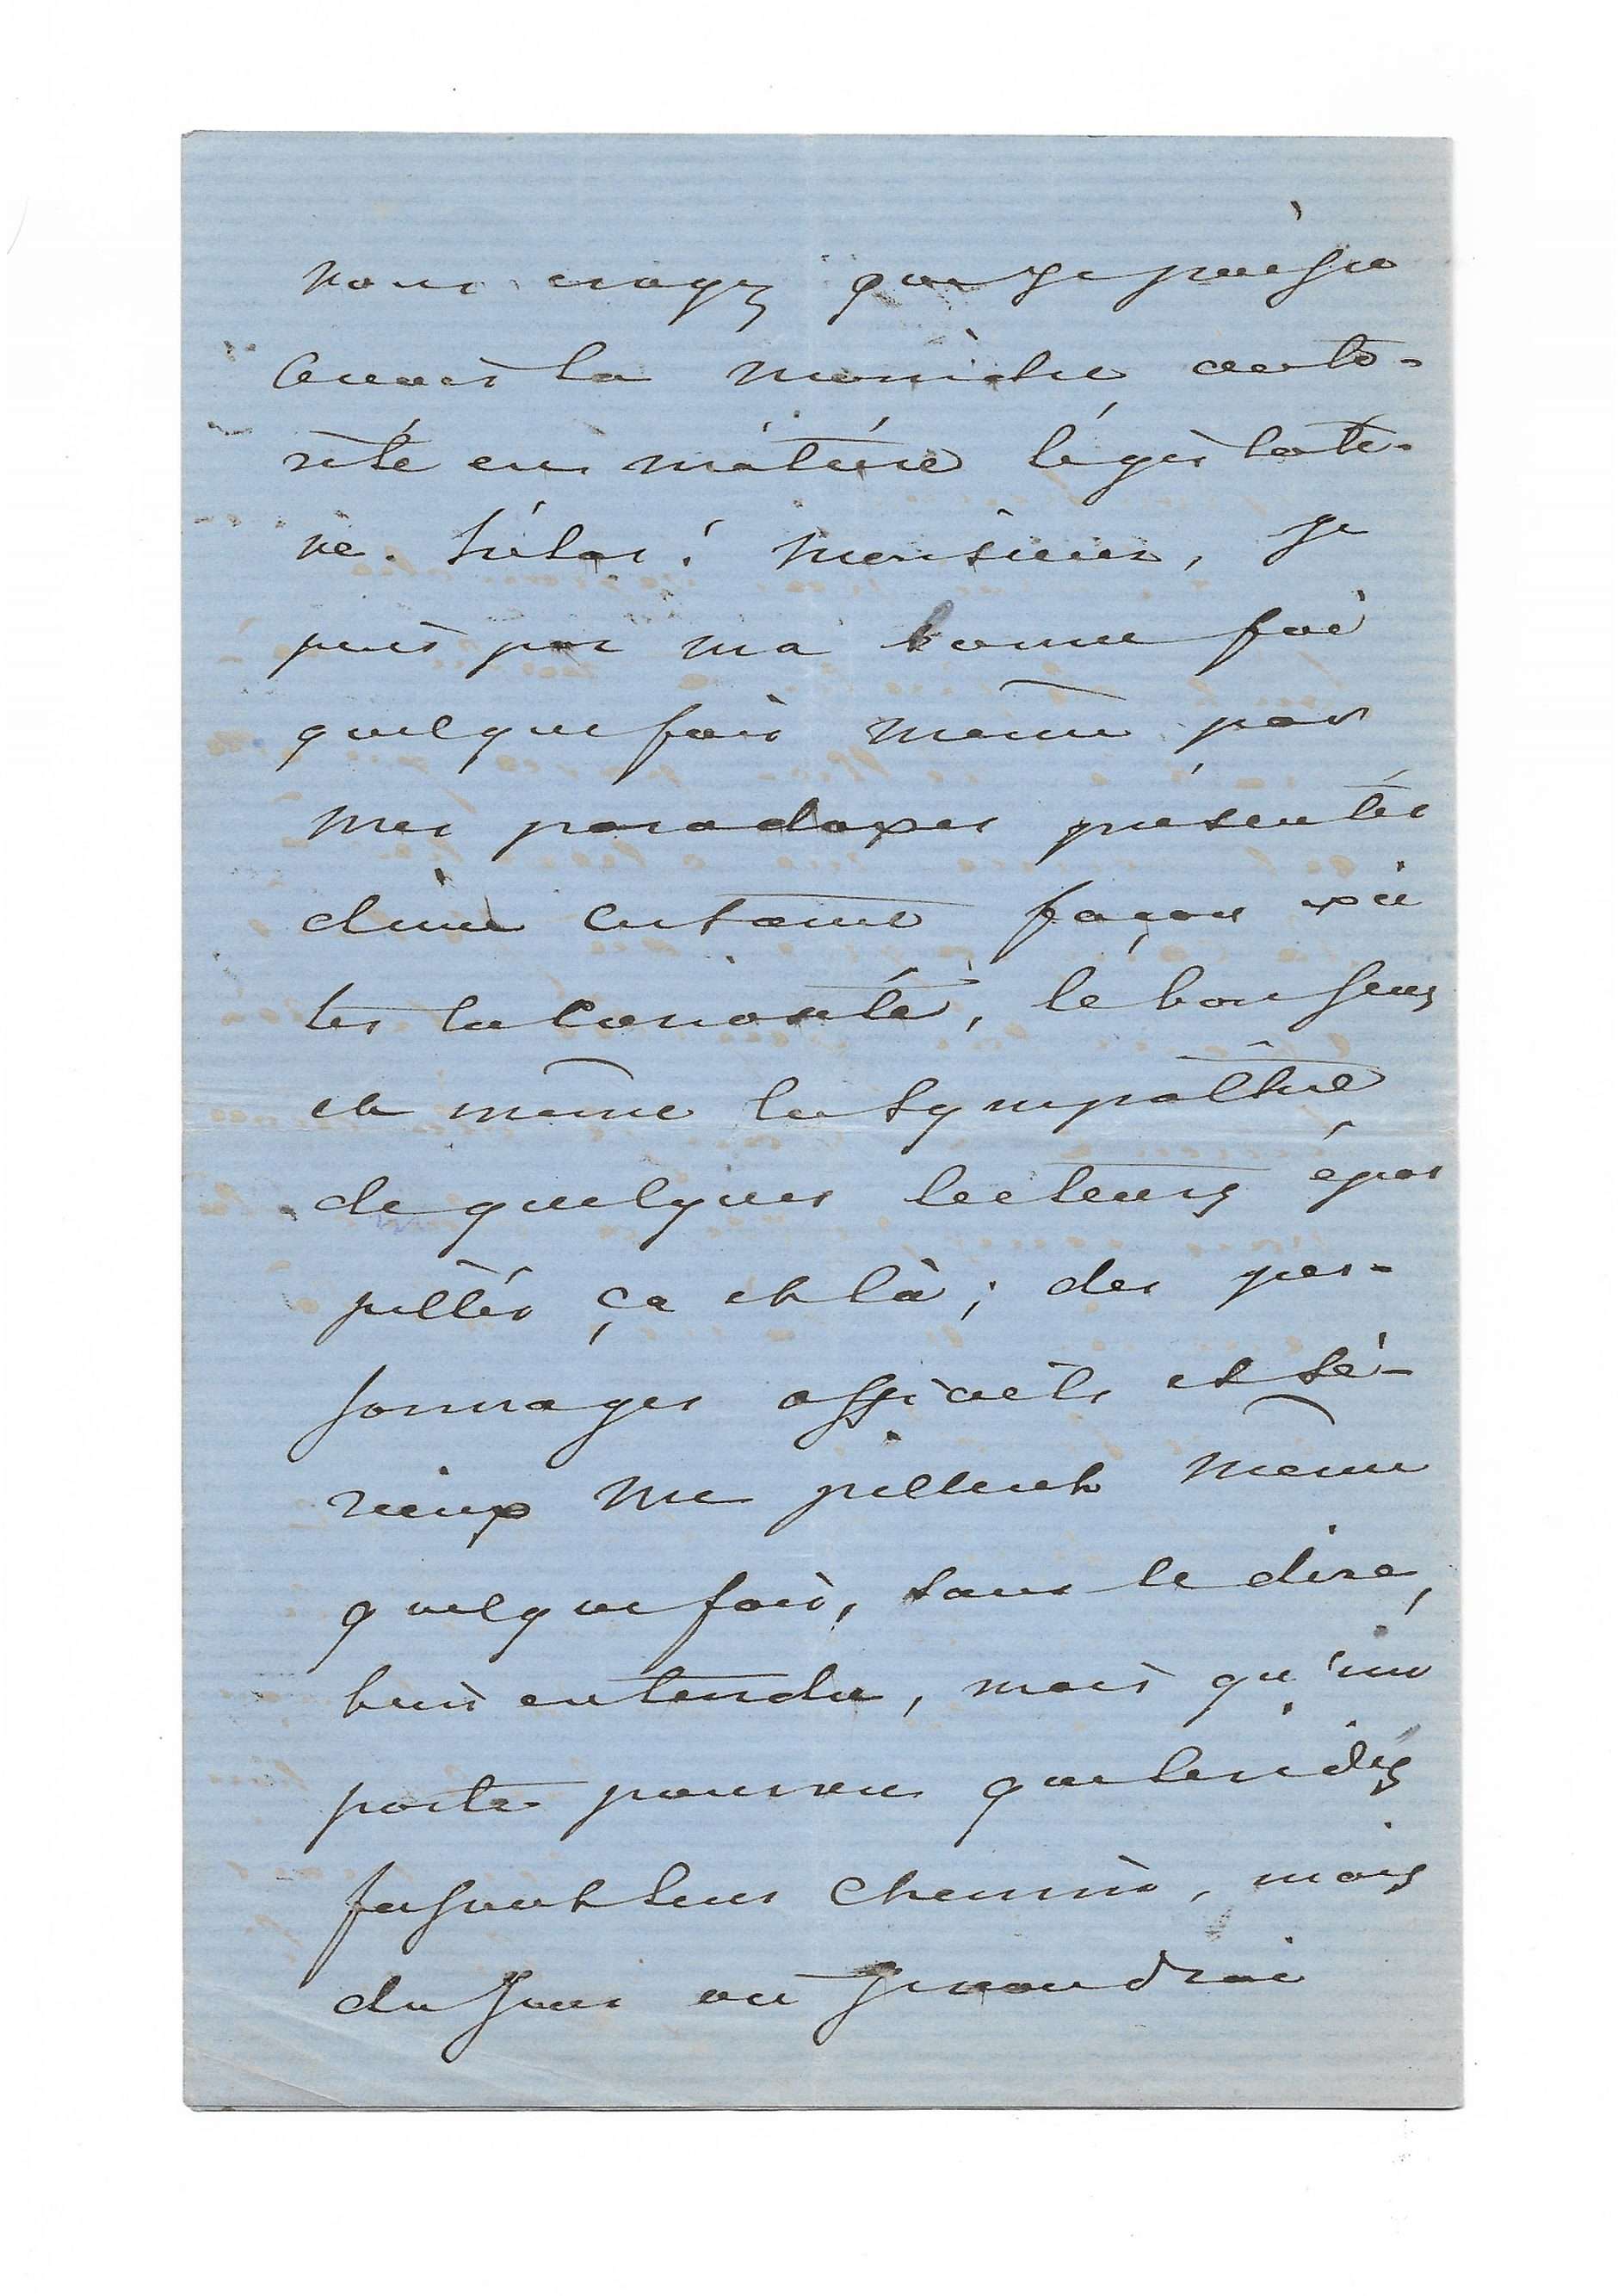 vous croyez que je puisse
avoir la moindre auto-
rité en matière législati-
ve. hélas! monsieur, je
puis par ma bonne foi
quelquefois même par
mes paradoxes présentés
d'une certaine façon exci
ter la curiosité, le bon sens
et même la sympathie
de quelques lecteurs épar
pillés çà et là; des per-
sonnages officiels et sé-
rieux me pillent même
quelquefois, sans le dire,
bien entendu, mais qu'im
porte pourvu que les idées
fassent leur chemin, mais
du jour où je voudrai